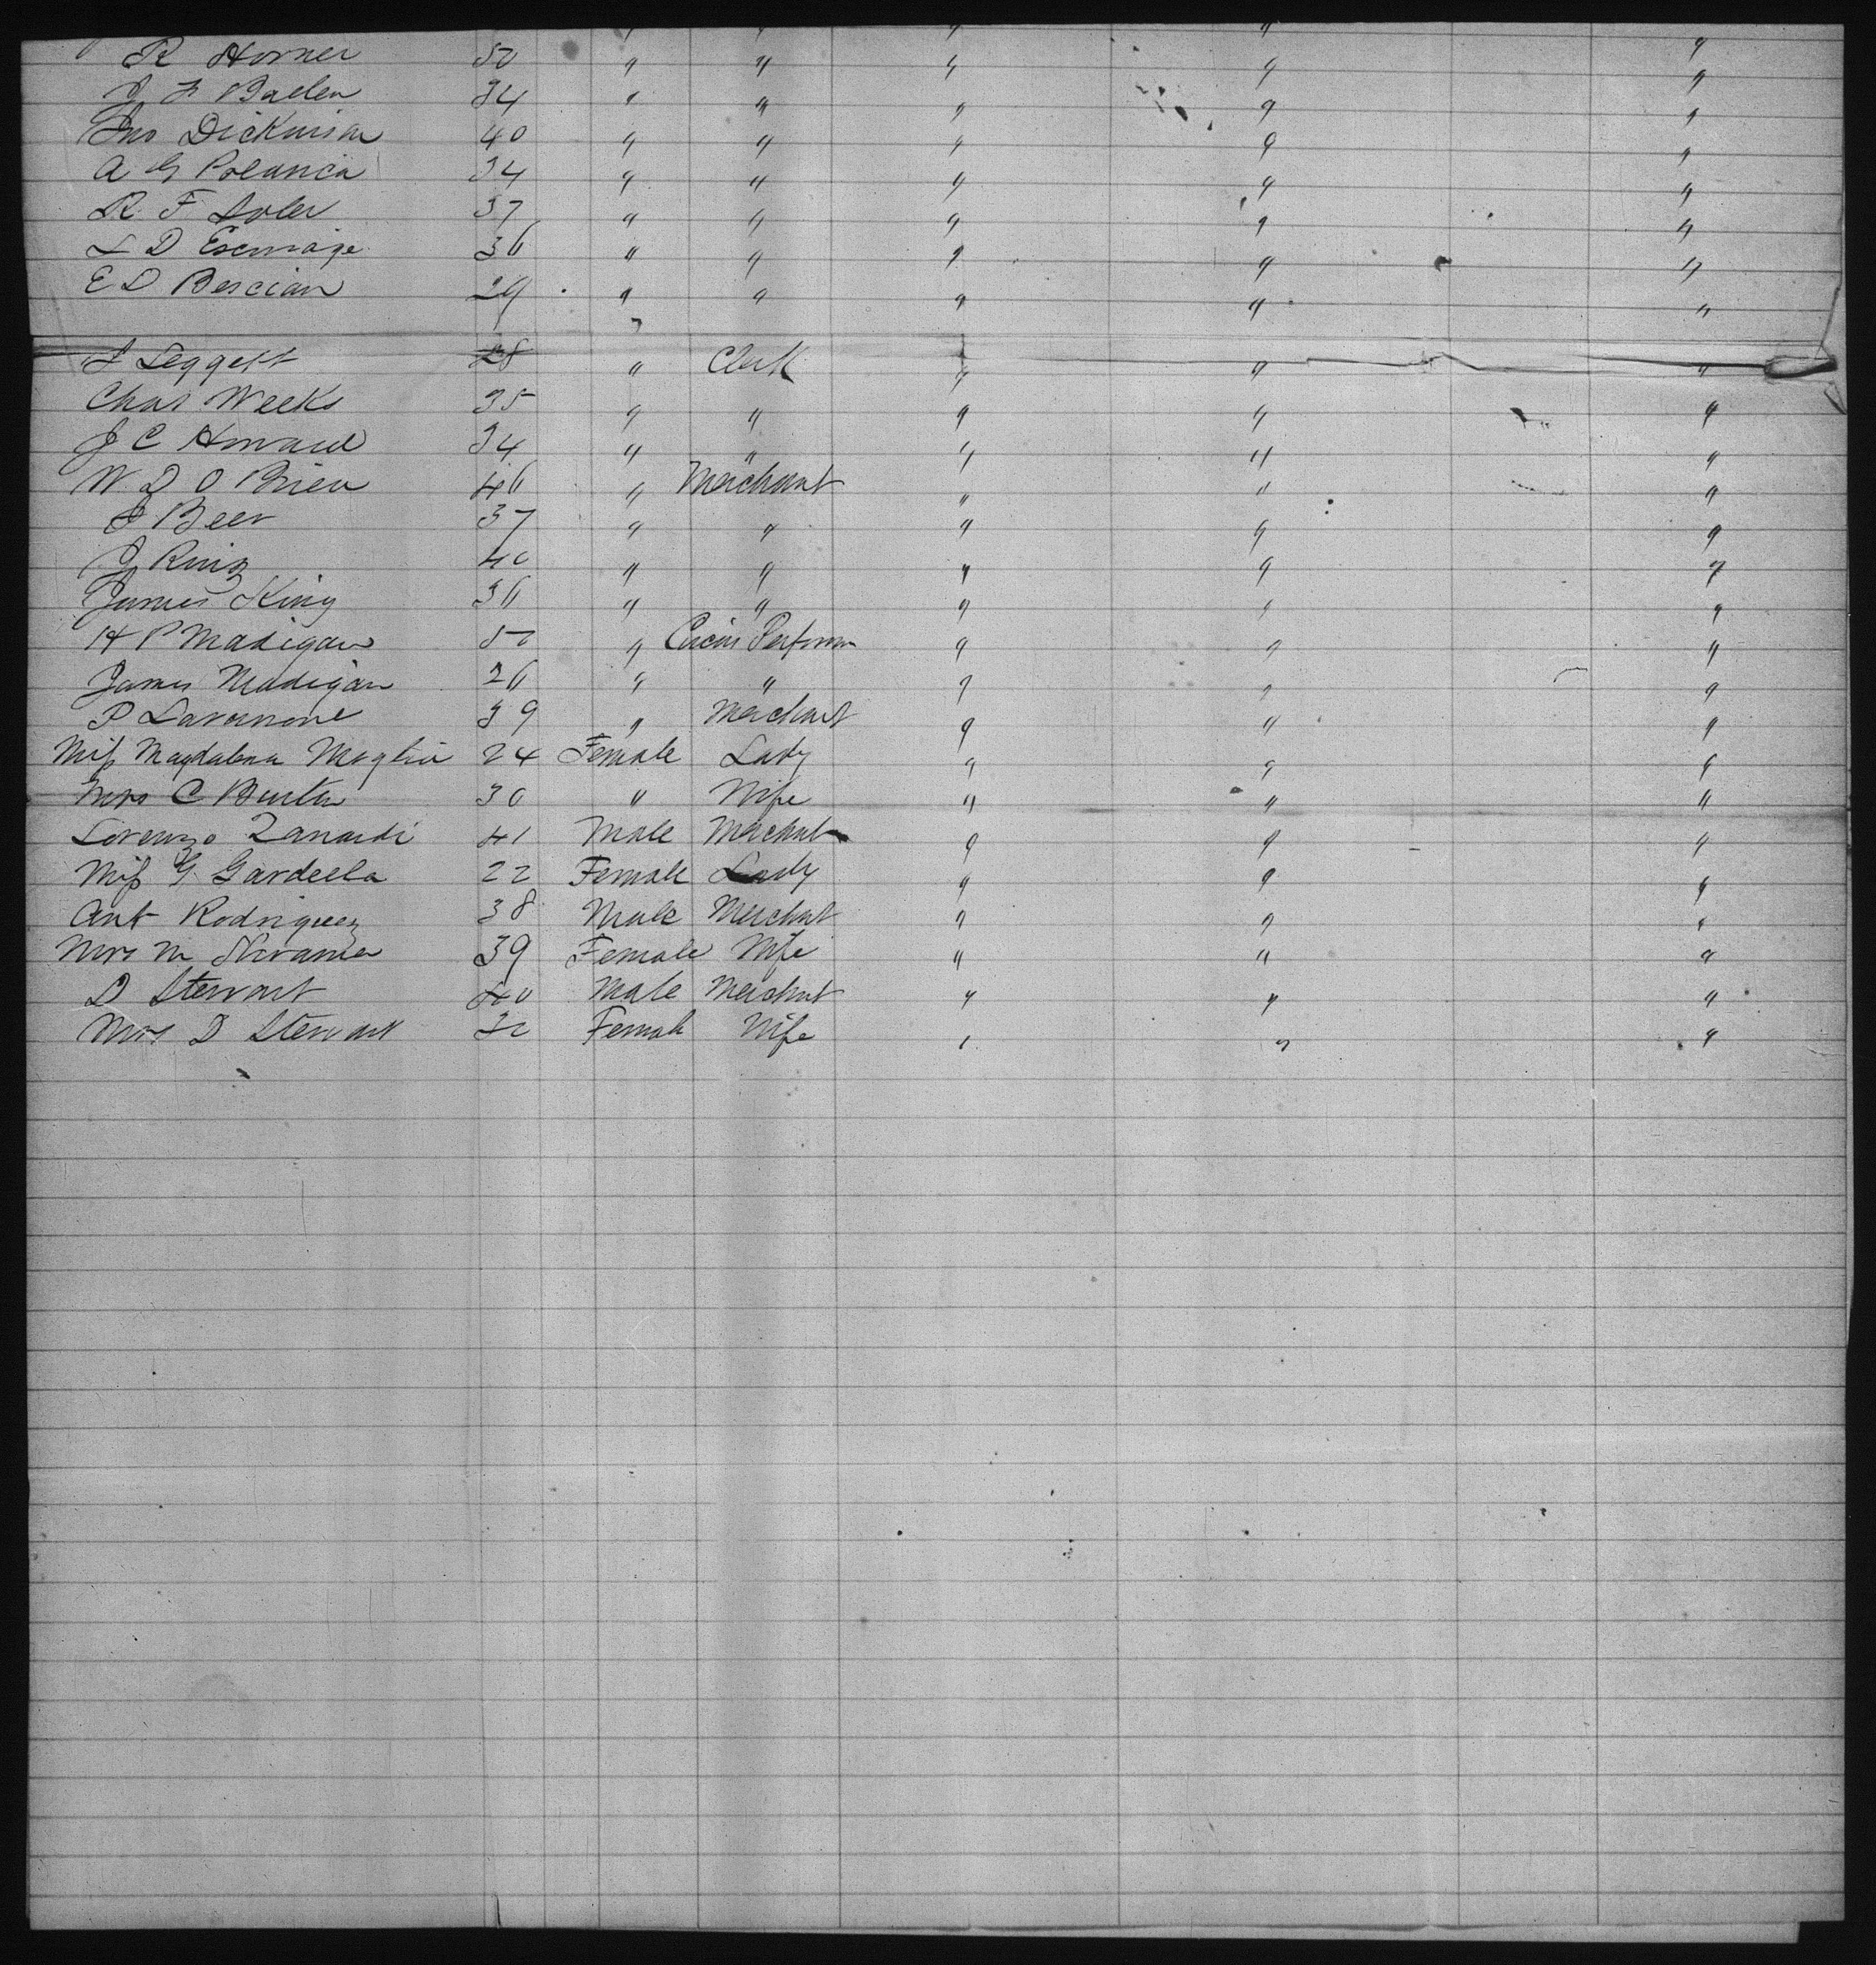 R Horner 50 " " " " "
J F Baelen 34 " " " " "
Jno Dickinson 40 " " " " "
A G Polanca 34 " " " " "
R. F Soler 37 " " " " "
L D 36 " " " " "
E D Bescian 29 " " " " "
Leggett 28 " Clerk " " "
Chas Weeks 35 " " " " "
J C Howard 34 " " " " "
W D O Brien 46 " Merchant " " "
Beer 37 " " " " "
J Ruiz 40 " " " " "
James King 36 " " " " "
H P Madigan 52 " Circus Performer " " "
James Madigan 26 " " " " "
P Lavanone 39 " Merchant " " "
Miss Magdalena 24 Female Lady " " "
Mrs C Burton 30 " Wife " " "
Lorenzo Zanardi 41 Male Merchant " " "
Miss G. Gardella 22 Female Lady " " "
Ant Rodriguez 38 Male Merchant " " "
Mrs M 39 Female Wife " " "
D Stewart 40 Male Merchant " " "
Mrs D Stewart 32 Female Wife " " "